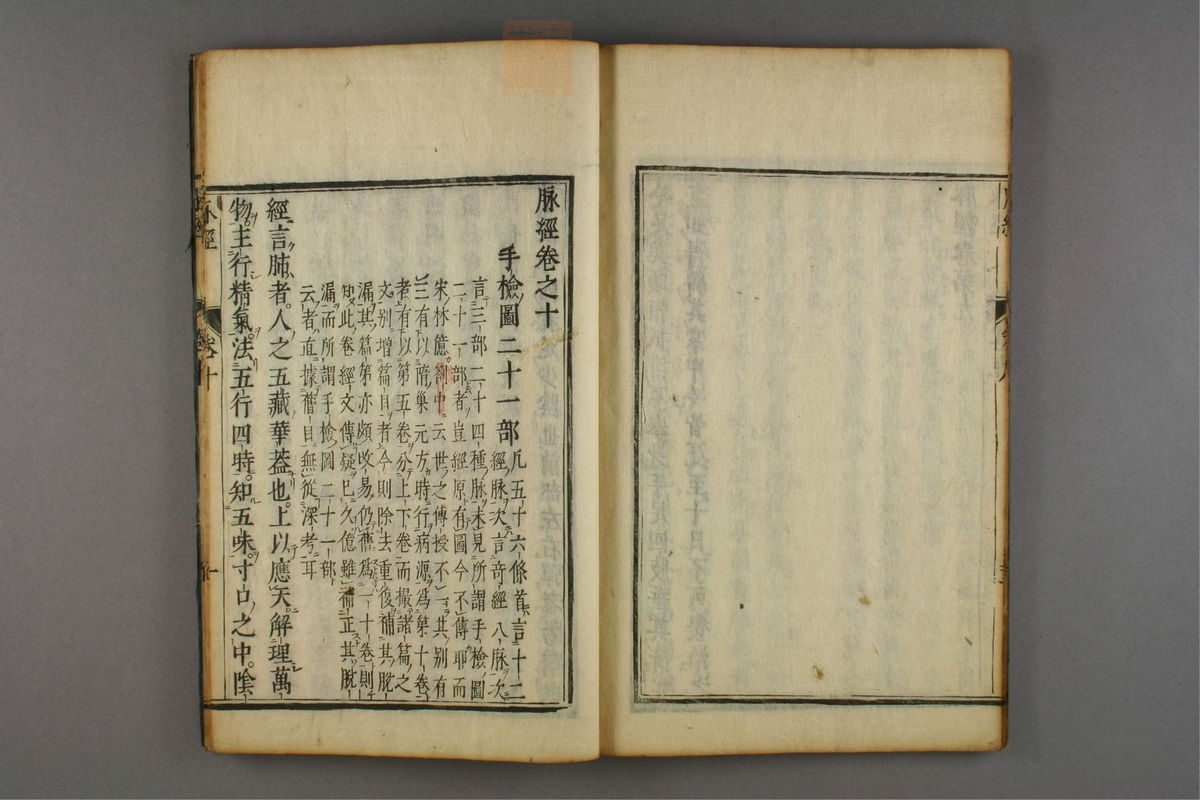 脉經卷之十
手檢圖二十一部
凡五十六條首言十二
經脉次言奇經八脉次
言三部二十四種脉未見所謂手檢圖
二十一部者豈經原有圖今不傳耶而
宋林億 云世之傳授不一其别有
三有以隋巢元方時行病源爲第十卷
者有以第五卷分上下卷而撮諸篇之
文别增篇目者今則除去重復補其脱
漏其篇第亦頗改易仍舊爲一十卷則
知此卷經文傳疑已久億雖補正其脱
漏而所謂手檢圖二十一部
云者直據舊目無從深考耳
經言肺者人之五藏華葢也上以應天解理萬
物主行精氣法五行四時知五味寸口之中陰
脉經
卷十